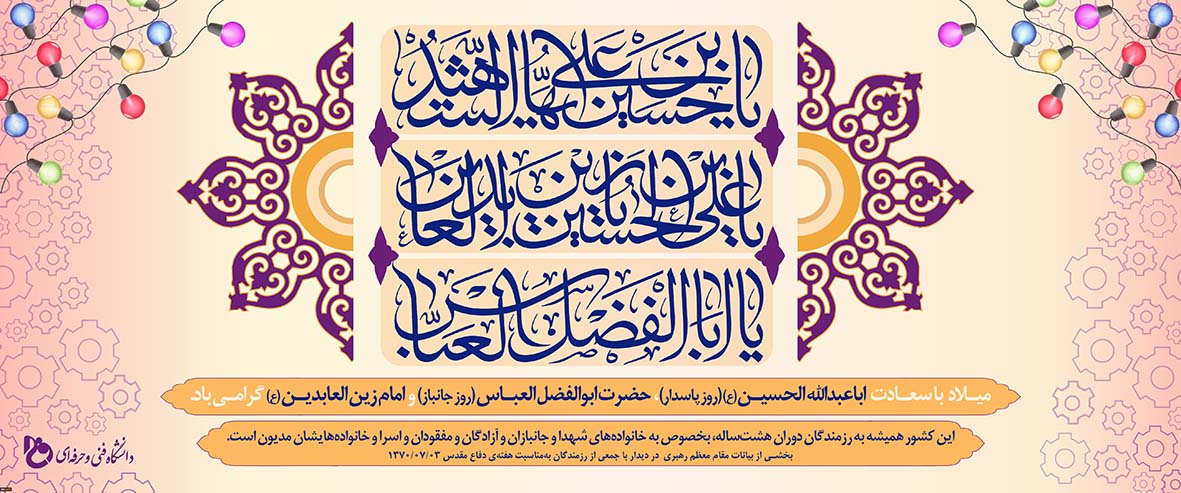 یا حسین بن علی ایها الشهید
یا علی بن الحسین یا زین العابدین
یا اباالفضل العباس
میلاد با سعادت اباعبدالله الحسین (ع) (روز پاسدار)، حضرت ابوالفضل العباس (روز جانباز) و امام زین العابدین (ع) گرامی باد.
این کشور همیشه به رزمندگان دوران هشت‌ساله، بخصوص به خانواده‌های شهدا و جانبازان و آزادگان و مفقودان و اسرا و خانواده‌هایشان مدیون است.
بخشی از بیانات مقام معظم رهبری در دیدار با جمعی از رزمندگان به‌مناسبت هفته‌ی دفاع مقدس ۱۳۷۰/۰۷/۰۳
دانشگاه فنی و حرفه‌ای